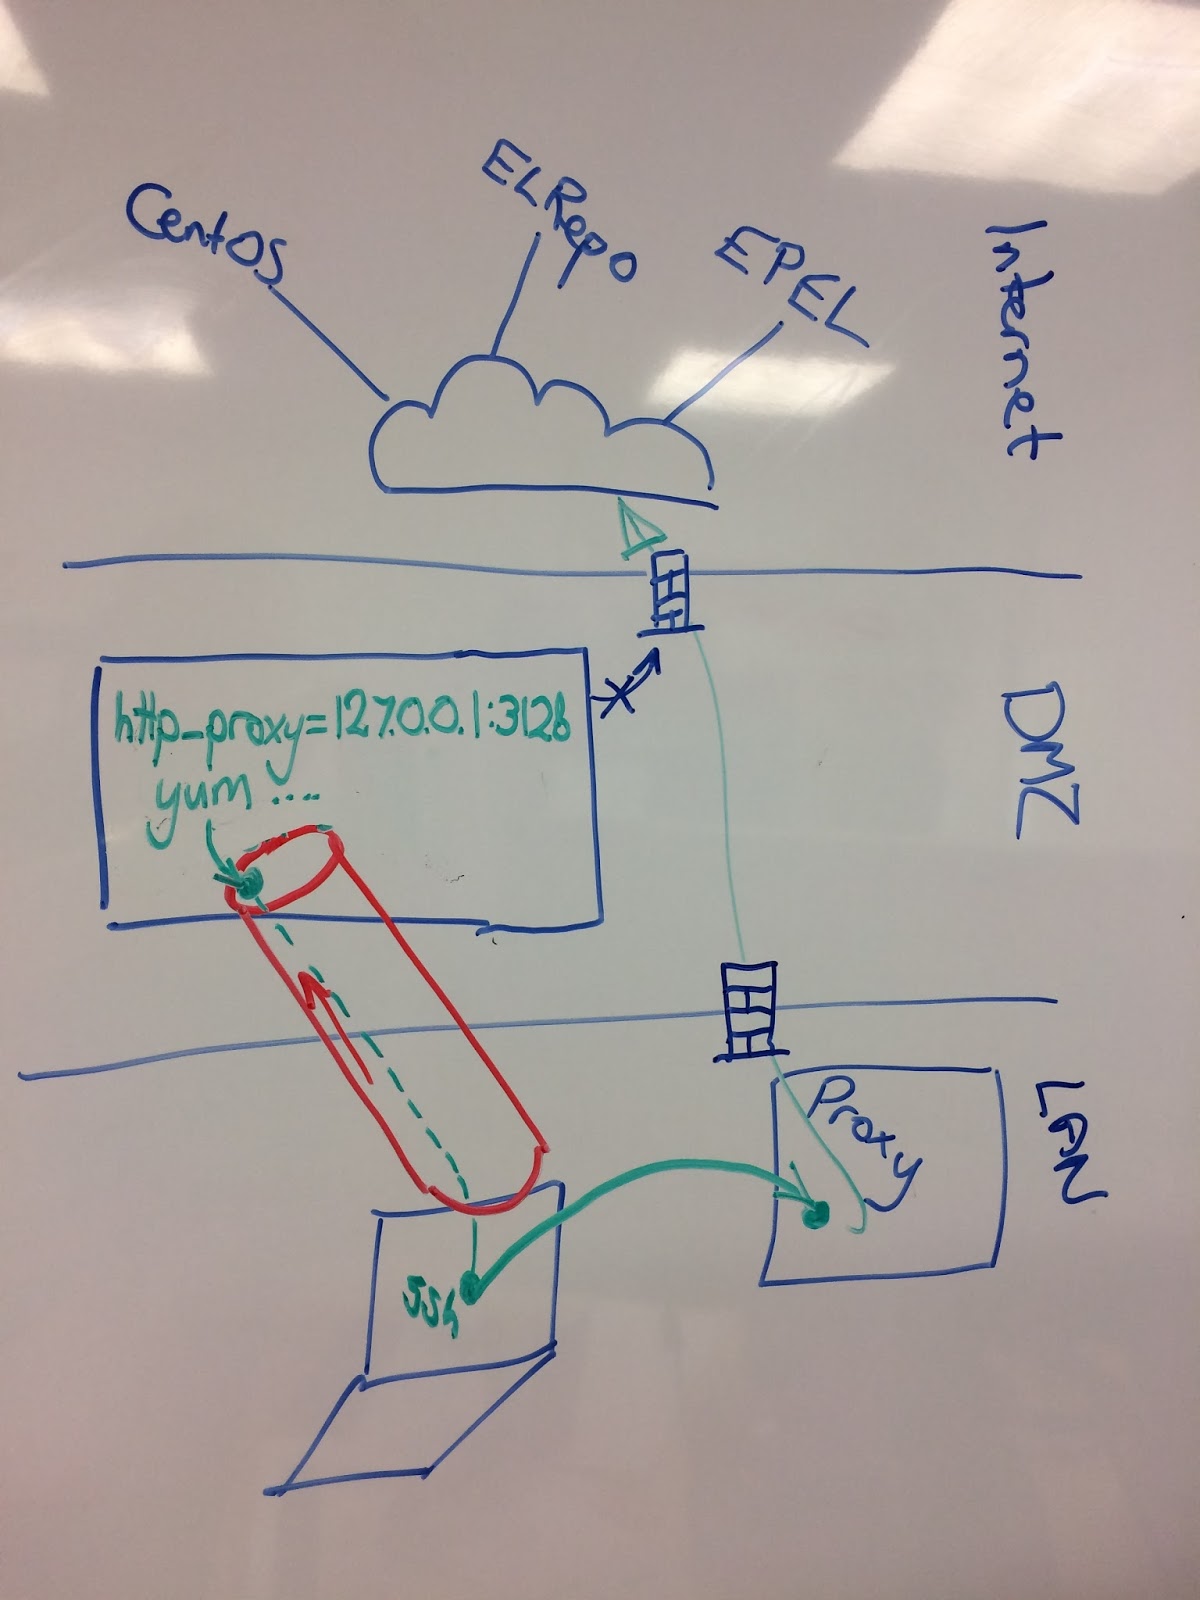 CentOS
ELRepo
EPEL
Internet
http_proxy=127.0.0.1:3128
yum ....
DMZ
Proxy
LAN
ssh